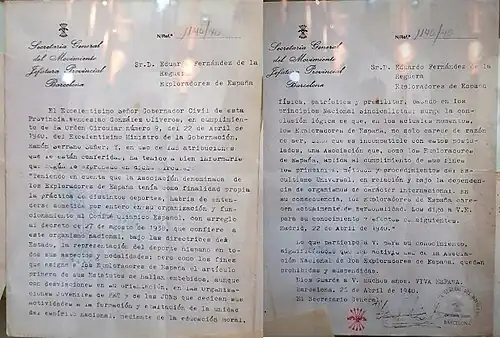 Secretaría General
del Movimiento
Jefatura Provincial
Barcelona
N/Ref.ª 1140/40
Sr.D. Eduardo Fernández de la
Reguera
Exploradores de España
El Excelentísimo Señor Gobernador Civil de esta
Provincia, Wenceslao González Oliveros, en cumplimien-
to de la Orden Circular número 9, del 22 de Abril de
1940, del Excelentísimo Ministro de la Gobernación,
Ramón Serrano Suñer, Y, en uso de las atribuciones
que le están conferidas, ha tenido a bien informarle
"Teniendo en cuenta que la Asociación denominada de
los Exploradores de España tenía como finalidad propia
la práctica de distintos deportes, habría de enten-
derse sometida por entero en su organización y fun-
cionamiento al Comité Olímpico Español, con arreglo
al decreto de 27 de Agosto de 1938, que confiere a
este organismo nacional, bajo las directrices del
Estado, la representación del deporte hispano en to-
dos sus aspectos y modalidades; pero como los fines
que asigna a los Exploradores de España el artículo
primero de sus Estatutos se hallan embebidos, aunque
con desviaciones en su orientación, en las organiza-
ciones Juveniles de FET y de las JONS que dedican sus
actividades a la formación y exaltación de la unidad
del espíritu nacional, mediante la educación moral,
Secretaría General
del Movimiento
Jefatura Provincial
Barcelona
N/Ref.ª 1140/40
Sr.D. Eduardo Fernández de la
Reguera
Exploradores de España
física, patriótica y premilitar, basado en los
principios Nacional sindicalistas, surge la con-
clusión lógica de que, en los actuales momentos,
los Exploradores de España, no solo carece de razón
de ser, sino que es incompatible con estos postula-
dos, una Asociación que, como los Exploradores de
España, aspira al cumplimiento de sus fines
los principios, métodos y procedimientos del es-
cultismo Universal, en relación y bajo la dependencia
de organismos de carácter internacional. En
su consecuencia, los Exploradores de España care-
cen actualmente de personalidad. Los digo a V.E.
para su conocimiento y efectos consiguientes.
Madrid, 22 de Abril de 1940."
Lo que participo a V. para su conocimiento,
significándole que las actividades de la Asocia-
ción Nacional de los Exploradores de España, quedan
prohibidas y suspendidas.
Dios Guarde a V. muchos años. VIVA ESPAÑA.
Barcelona, 25 Abril de 1940.
El Secretario General